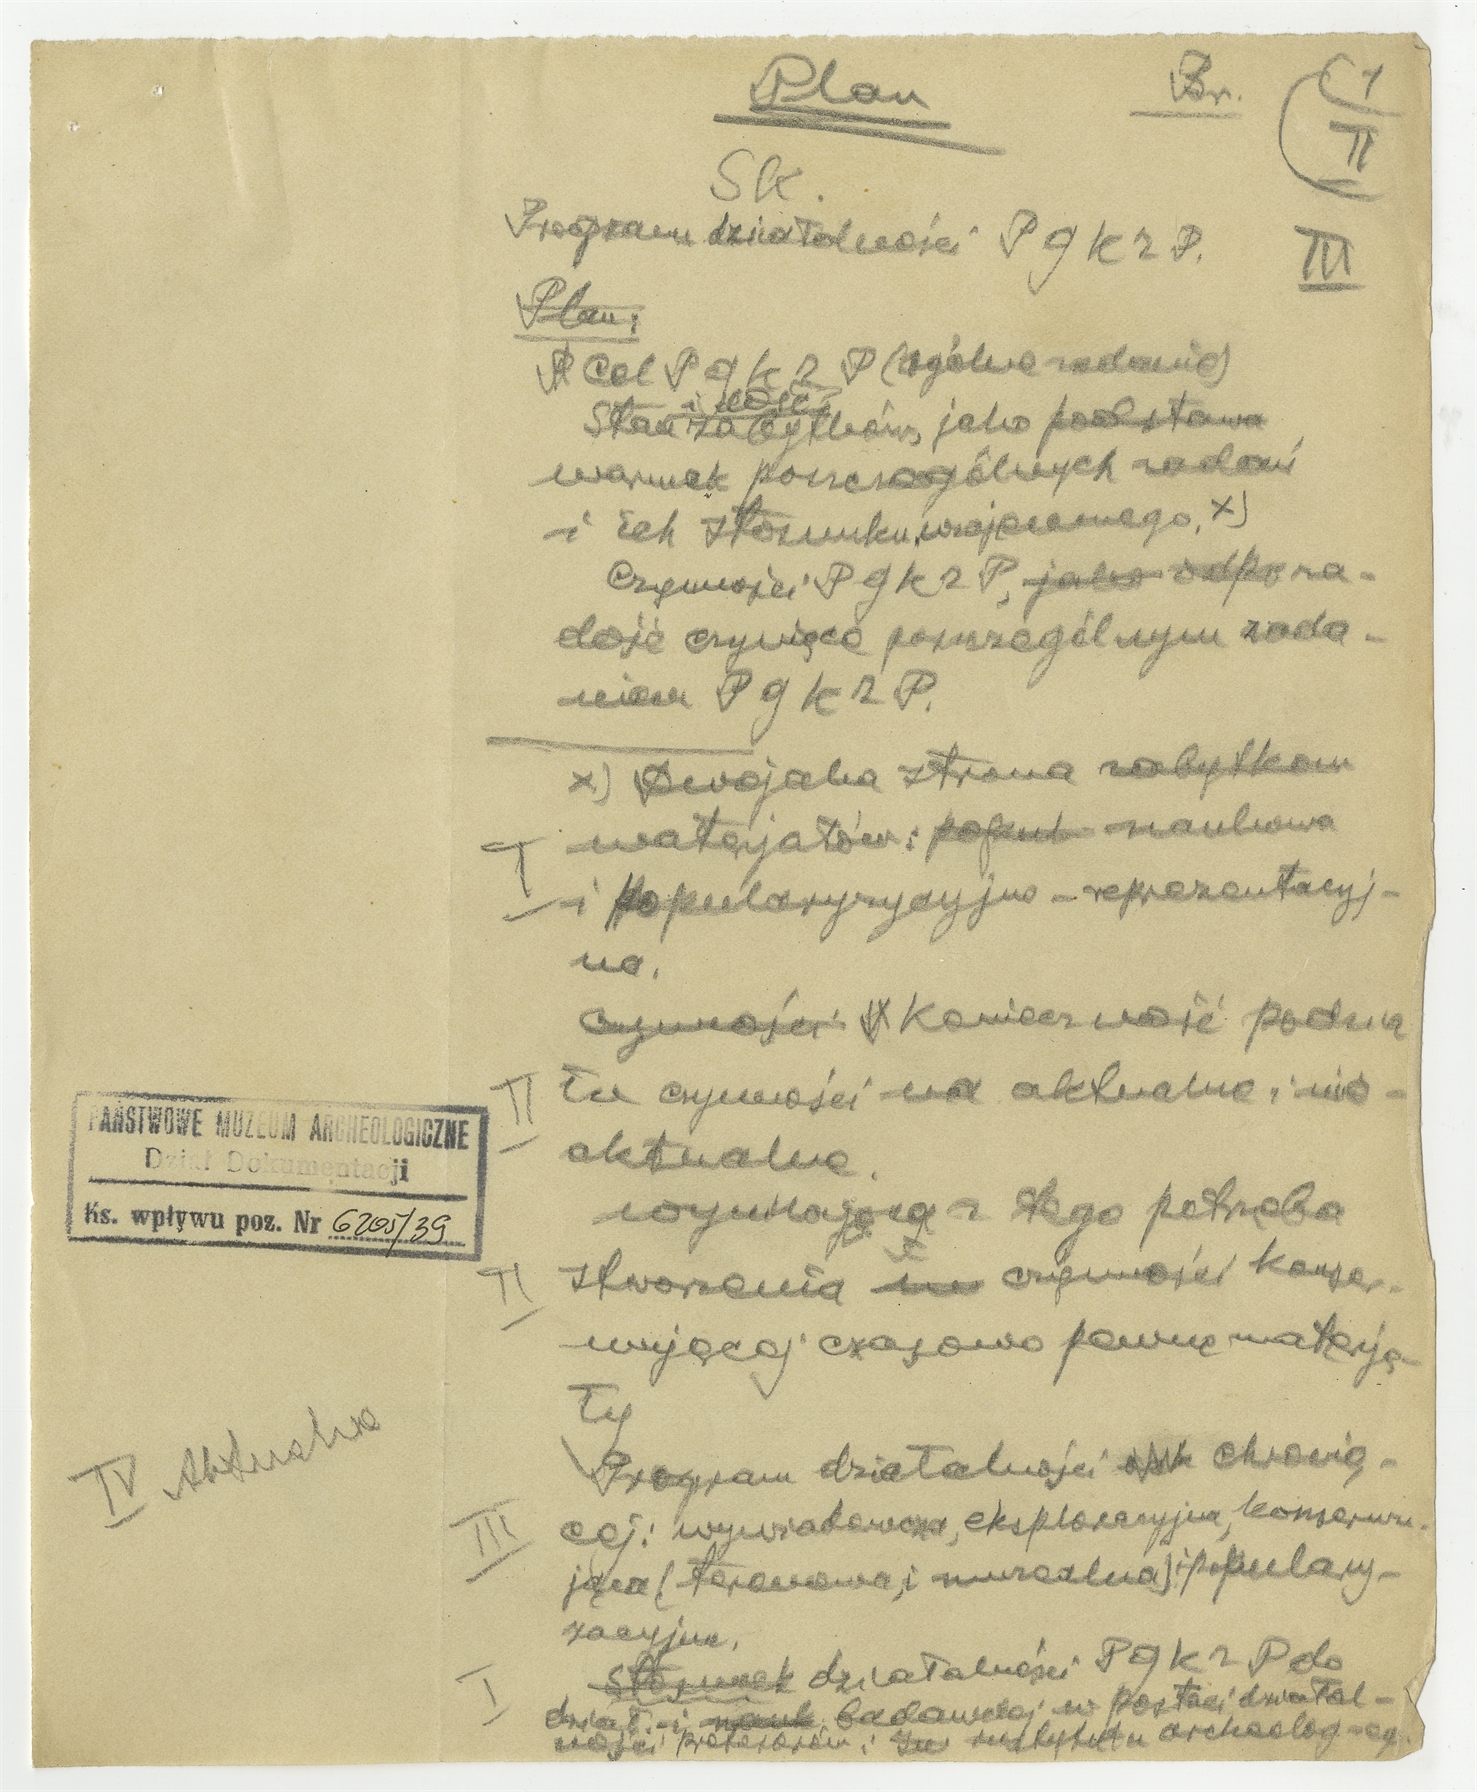 Plan
Br.
1
II
SK.
Program działalności P g K Z P.
III
Plan:
Cel P g K Z P (ogólne zadania)
i ilość
Stan zabytków, jako podstawa
warunek poszczególnych zadań
i ich stosunku wzajemnego, x)
Czynności P g K Z P, jako odp. za-
dość czyniące poszczególnym zada-
niom P g K Z P.
x) Dwojaka strona zabytkom
I materjałów: popul naukowa
i popularyzacyjno-reprezentacyj-
na.
czynności Konieczność podzia
II łu czynności na aktualne i nie-
aktualne.
wynikająca z tego potrzeba
II stworzenia czynności konser-
wującej czasowo pewne materja-
ły
Program działalności chronią-
III cej: wywiadowcza, eksploracyjna, konserwu-
jąca (terenowa i muzealna) i popularyza-
zacyjna.
I Stosunek działalności P g K Z P do
dział. i nauk. badawczej w postaci działal-
ności profesorów i instytutu archeolog-eg.
PAŃSTWOWE MUZEUM ARCHEOLOGICZNE
Dział Dokumentacji
Ks. wpływu poz. Nr 6205/39
IV Aktualne